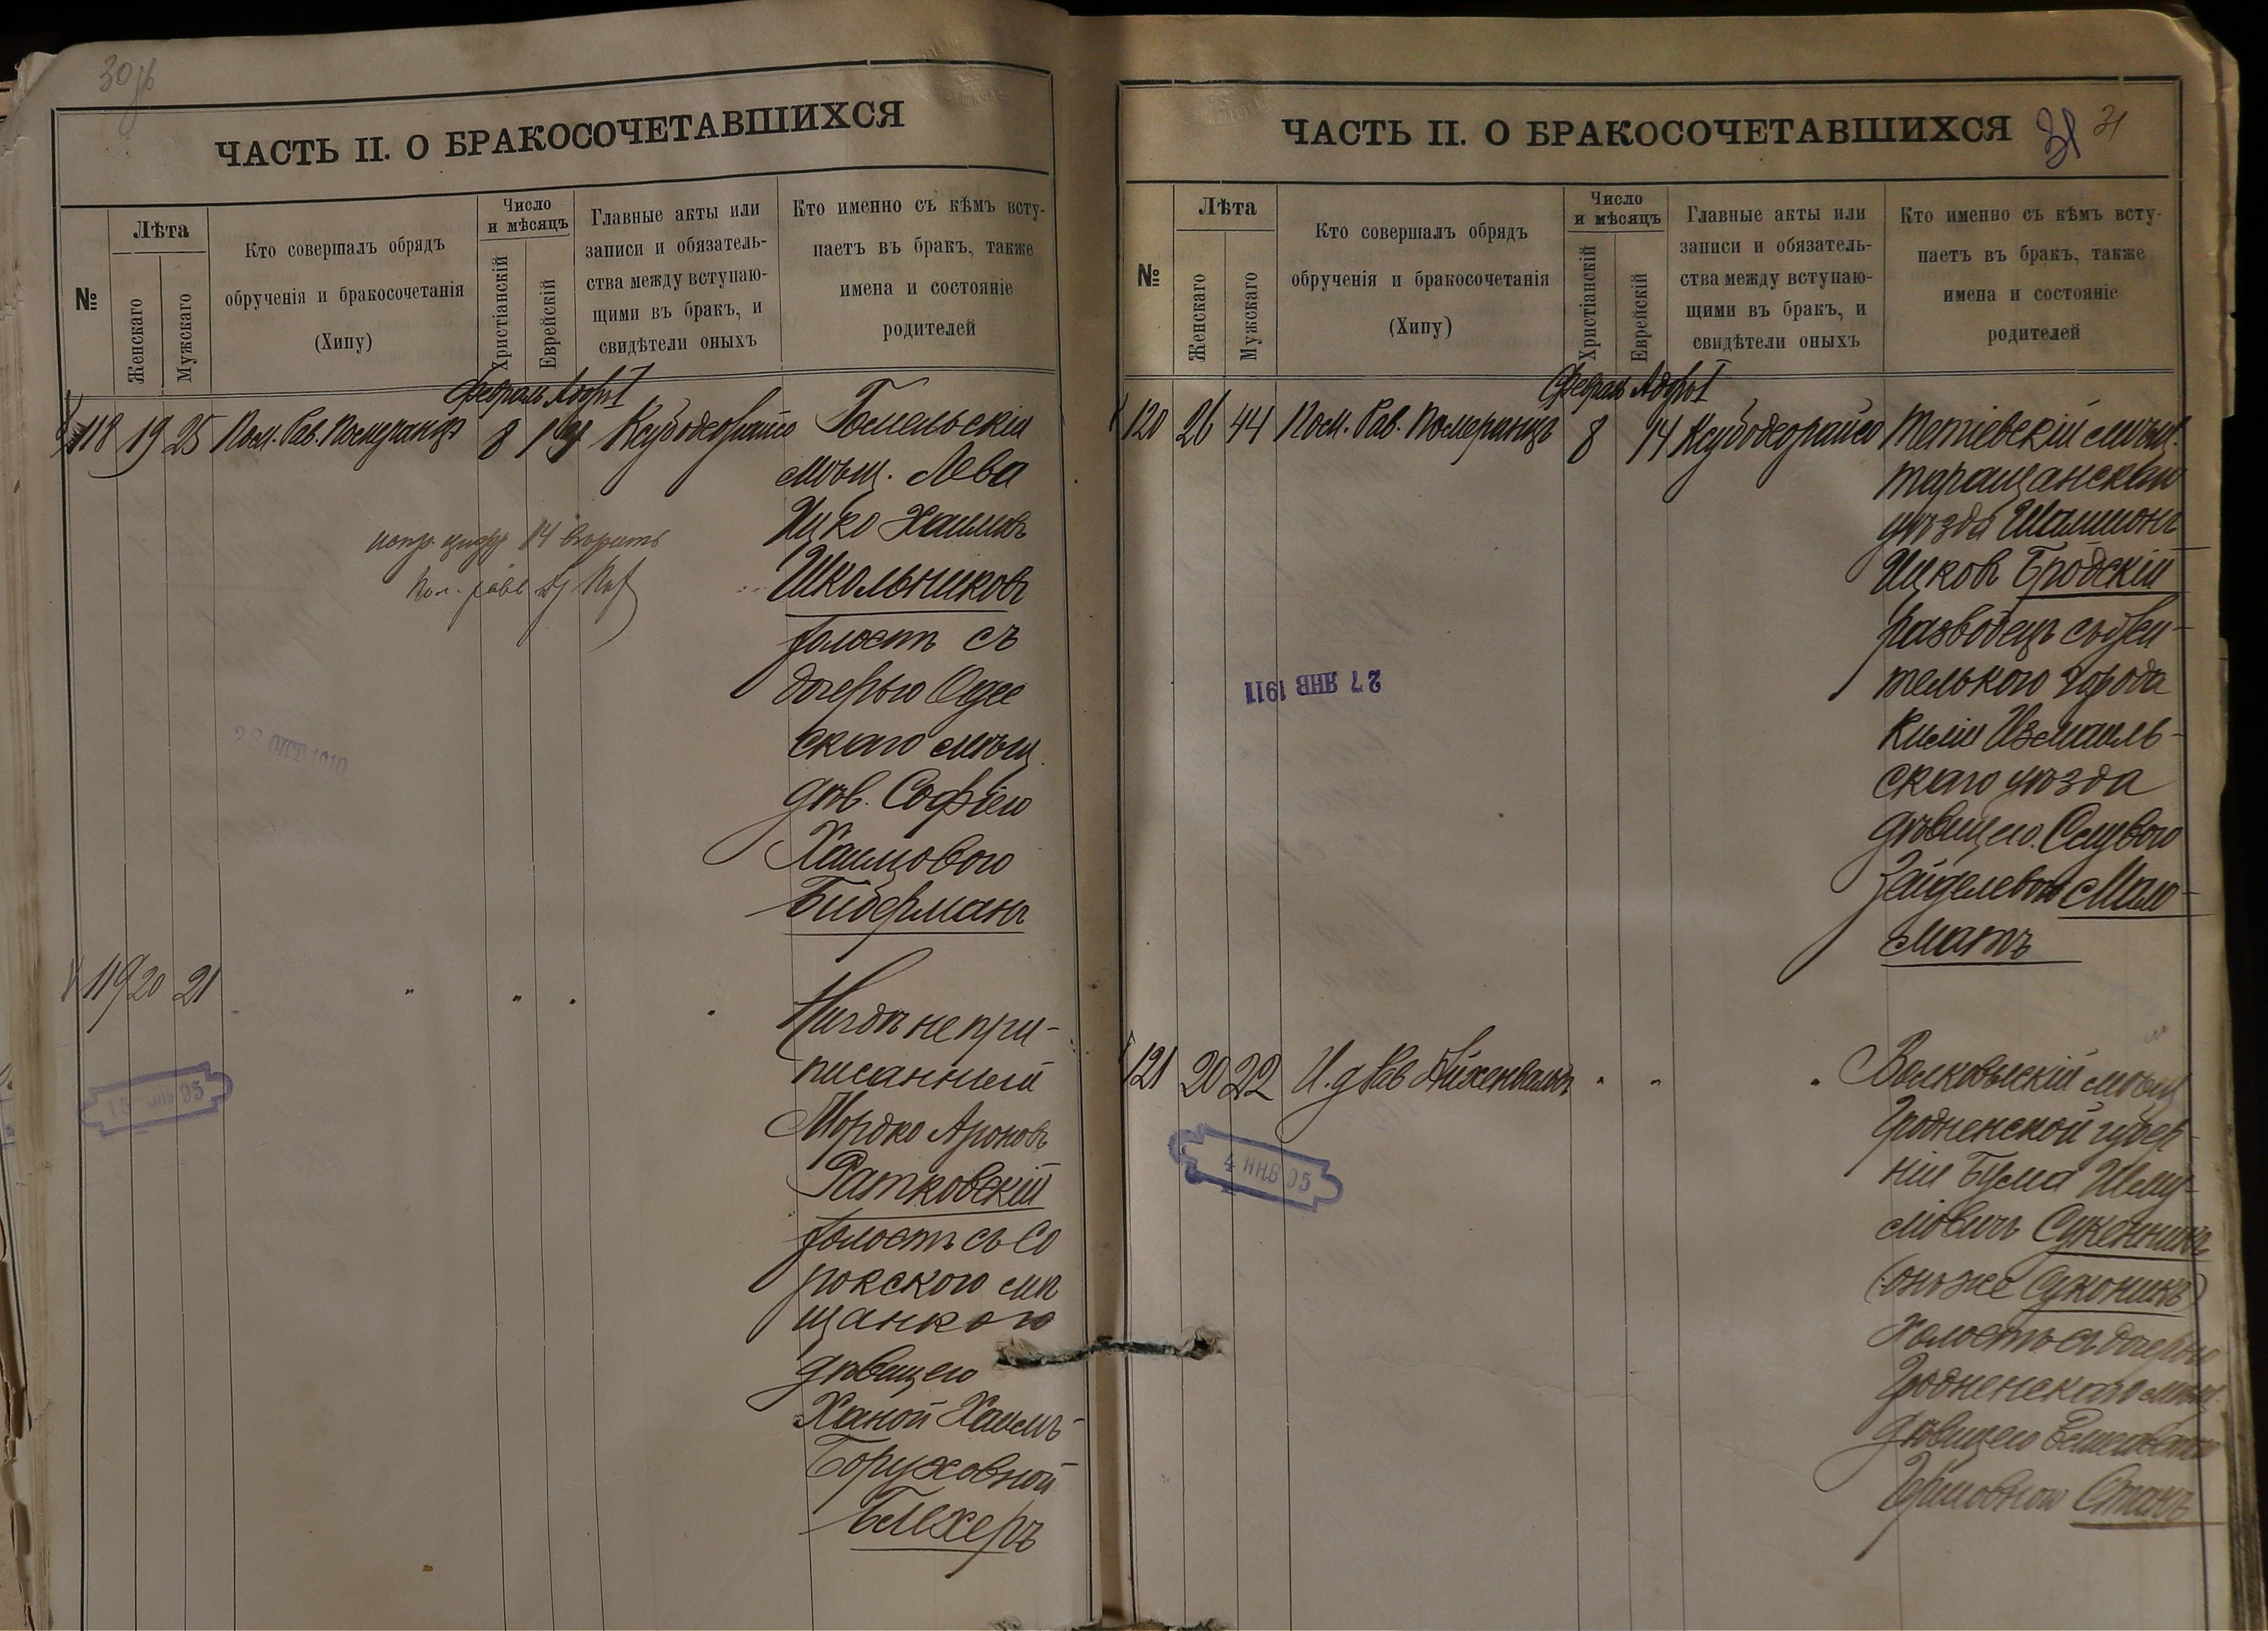 30об
ЧАСТЬ II. О БРАКОСОЧЕТАВШИХСЯ
№
Лѣта
Женскаго
Мужскаго
Кто совершалъ обрядъ
обрученія и бракосочетанія
(Хипу)
Число
и мѣсяцъ
Христіанскій
Еврейскій
Главные акты или
записи и обязатель-
ства между вступаю-
щими въ бракъ, и
свидѣтели оныхъ
Кто именно съ кѣмъ всту-
паетъ въ бракъ, также
имена и состояніе
родителей
Февраль Адаръ I
118 19 25 Пом. Рав. Померанцъ 8 14 Ксубодеорайсо
Гомельскій
мѣщ. Лева
Ицко Хаимовъ
Школьниковъ
холостъ съ
дочерью Одес
скаго мѣщ.
дѣв. Софіею
Хаимовою
Бидерманъ
14 вѣрить
119 20 21 " " " "
Нигдѣ не при-
писанный
Мордко Ароновъ
Ратковскій
холостъ съ Со
рокскою мѣ
щанкою
дѣвицею
Ханой Хаимъ-
Боруховной
Блехеръ
ЧАСТЬ II. О БРАКОСОЧЕТАВШИХСЯ
31 31
№
Лѣта
Женскаго
Мужскаго
Кто совершалъ обрядъ
обрученія и бракосочетанія
(Хипу)
Число
и мѣсяцъ
Христіанскій
Еврейскій
Главные акты или
записи и обязатель-
ства между вступаю-
щими въ бракъ, и
свидѣтели оныхъ
Кто именно съ кѣмъ всту-
паетъ въ бракъ, также
имена и состояніе
родителей
Февраль Адаръ I
120 26 44 Пом. Рав. Померанцъ 8 14 Ксубодеорайсо
Тетіевскій мѣщ.
таращанскаго
уѣзда Шлимонъ
Ицковъ Бродскій
разводецъ съ жи-
телькою города
Киліи Измаиль-
скаго уѣзда
дѣвицею
Зейделевою Мало-
матъ
27 ЯНВ 1911
121 20 22 И. д. Рав Айхенвальдъ " " "
Волковыскій мѣщ
Гродненской губер-
ніи Шму-
ловичъ Сукенникъ
(онъ же Сукеникъ)
Холостъ съ дочерью
Гродненскаго мѣщ.
дѣвицею
4 ЯНВ 95